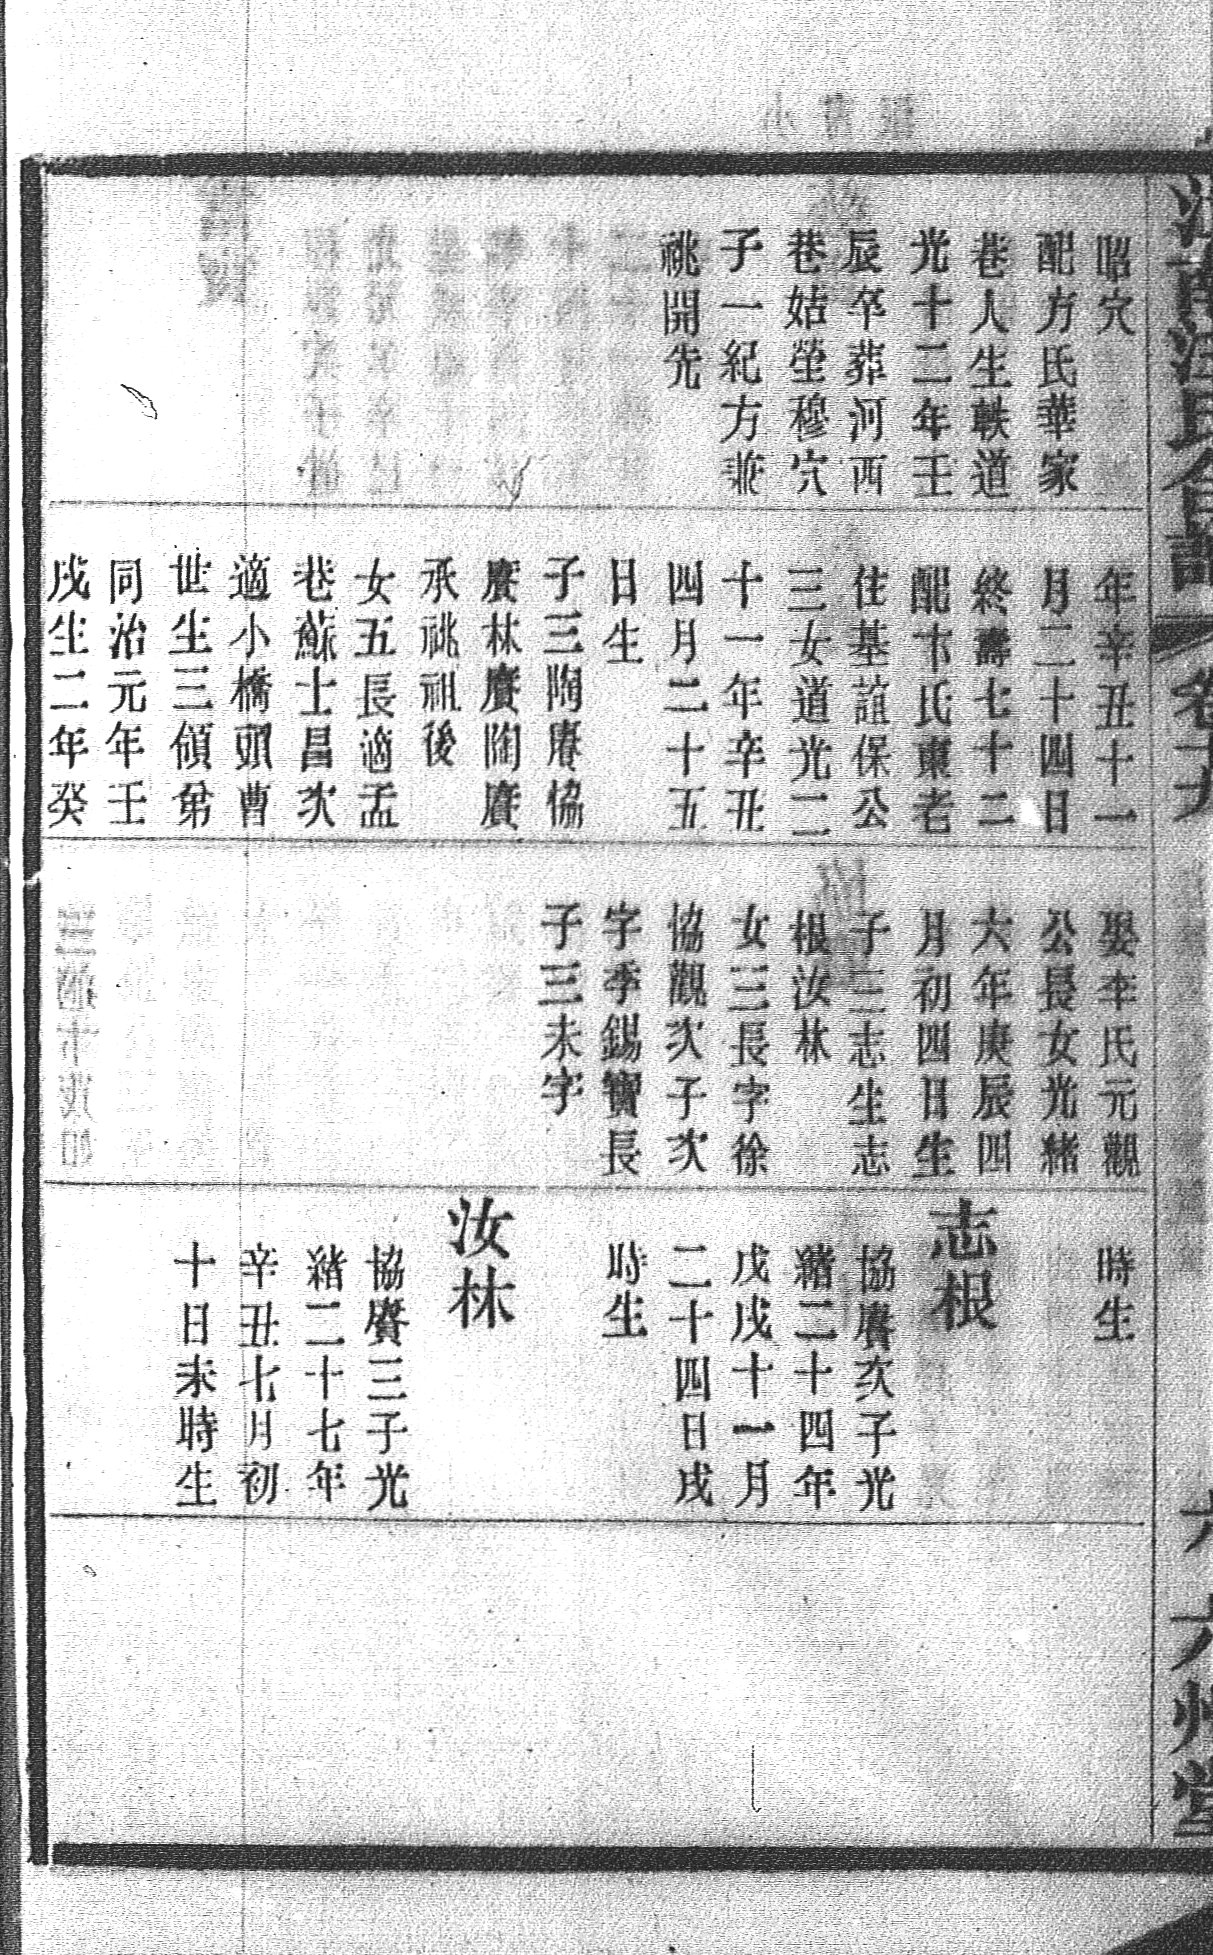 昭穴
配方氏華家
巷人生軼道
光十二年壬
辰卒葬河西
巷姑塋穆穴
子一紀方兼
祧開先
年辛丑十一
月二十四日
終壽七十二
配卞氏東老
住基誼保公
三女道光二
十一年辛丑
四月二十五
日生
子三陶賡協
賡林賡陶賡
承祧祖後
女五長適孟
巷蘇士昌次
適小橋頭曹
世生三傾弟
同治元年壬
戌生二年癸
娶李氏元觀
公長女光緒
六年庚辰四
月初四日生
子三志生志
根汝林
女三長字徐
協觀次子次
字季錫寶長
子三未字
時生
志根
協賡次子光
緒二十四年
戊戌十一月
二十四日戌
時生
汝林
協賡三子光
緒二十七年
辛丑七月初
十日未時生
卷十九
六州堂